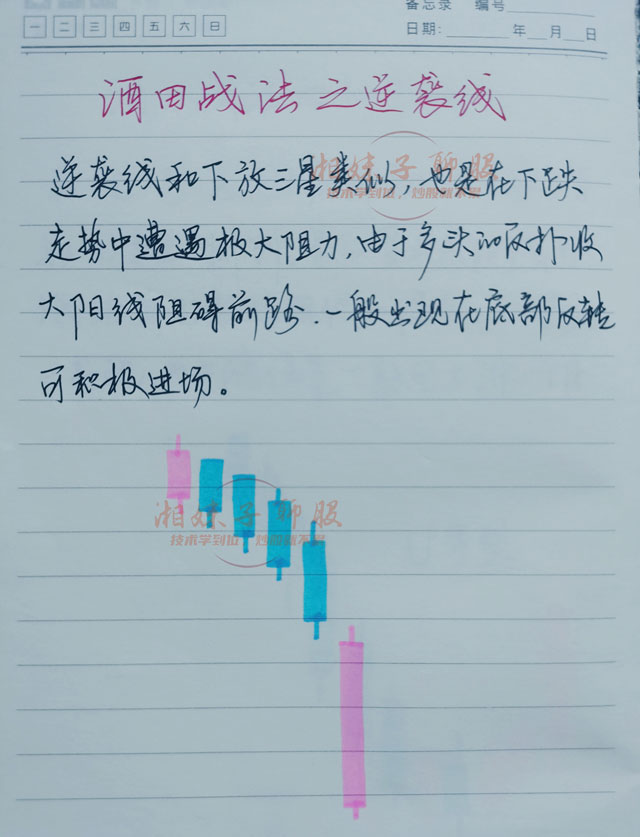 备忘录 编号
一 二 三 四 五 六 日
日期: 年 月 日
酒田战法之逆袭线
逆袭线和下放三星类似，也是在下跌
走势中遭遇极大阻力，由于多头的反扑收
大阳线阻碍前路，一般出现在底部反转
可积极进场。
湘妹子聊股
技术学到位，炒股就不累
湘妹子聊股
技术学到位，炒股就不累